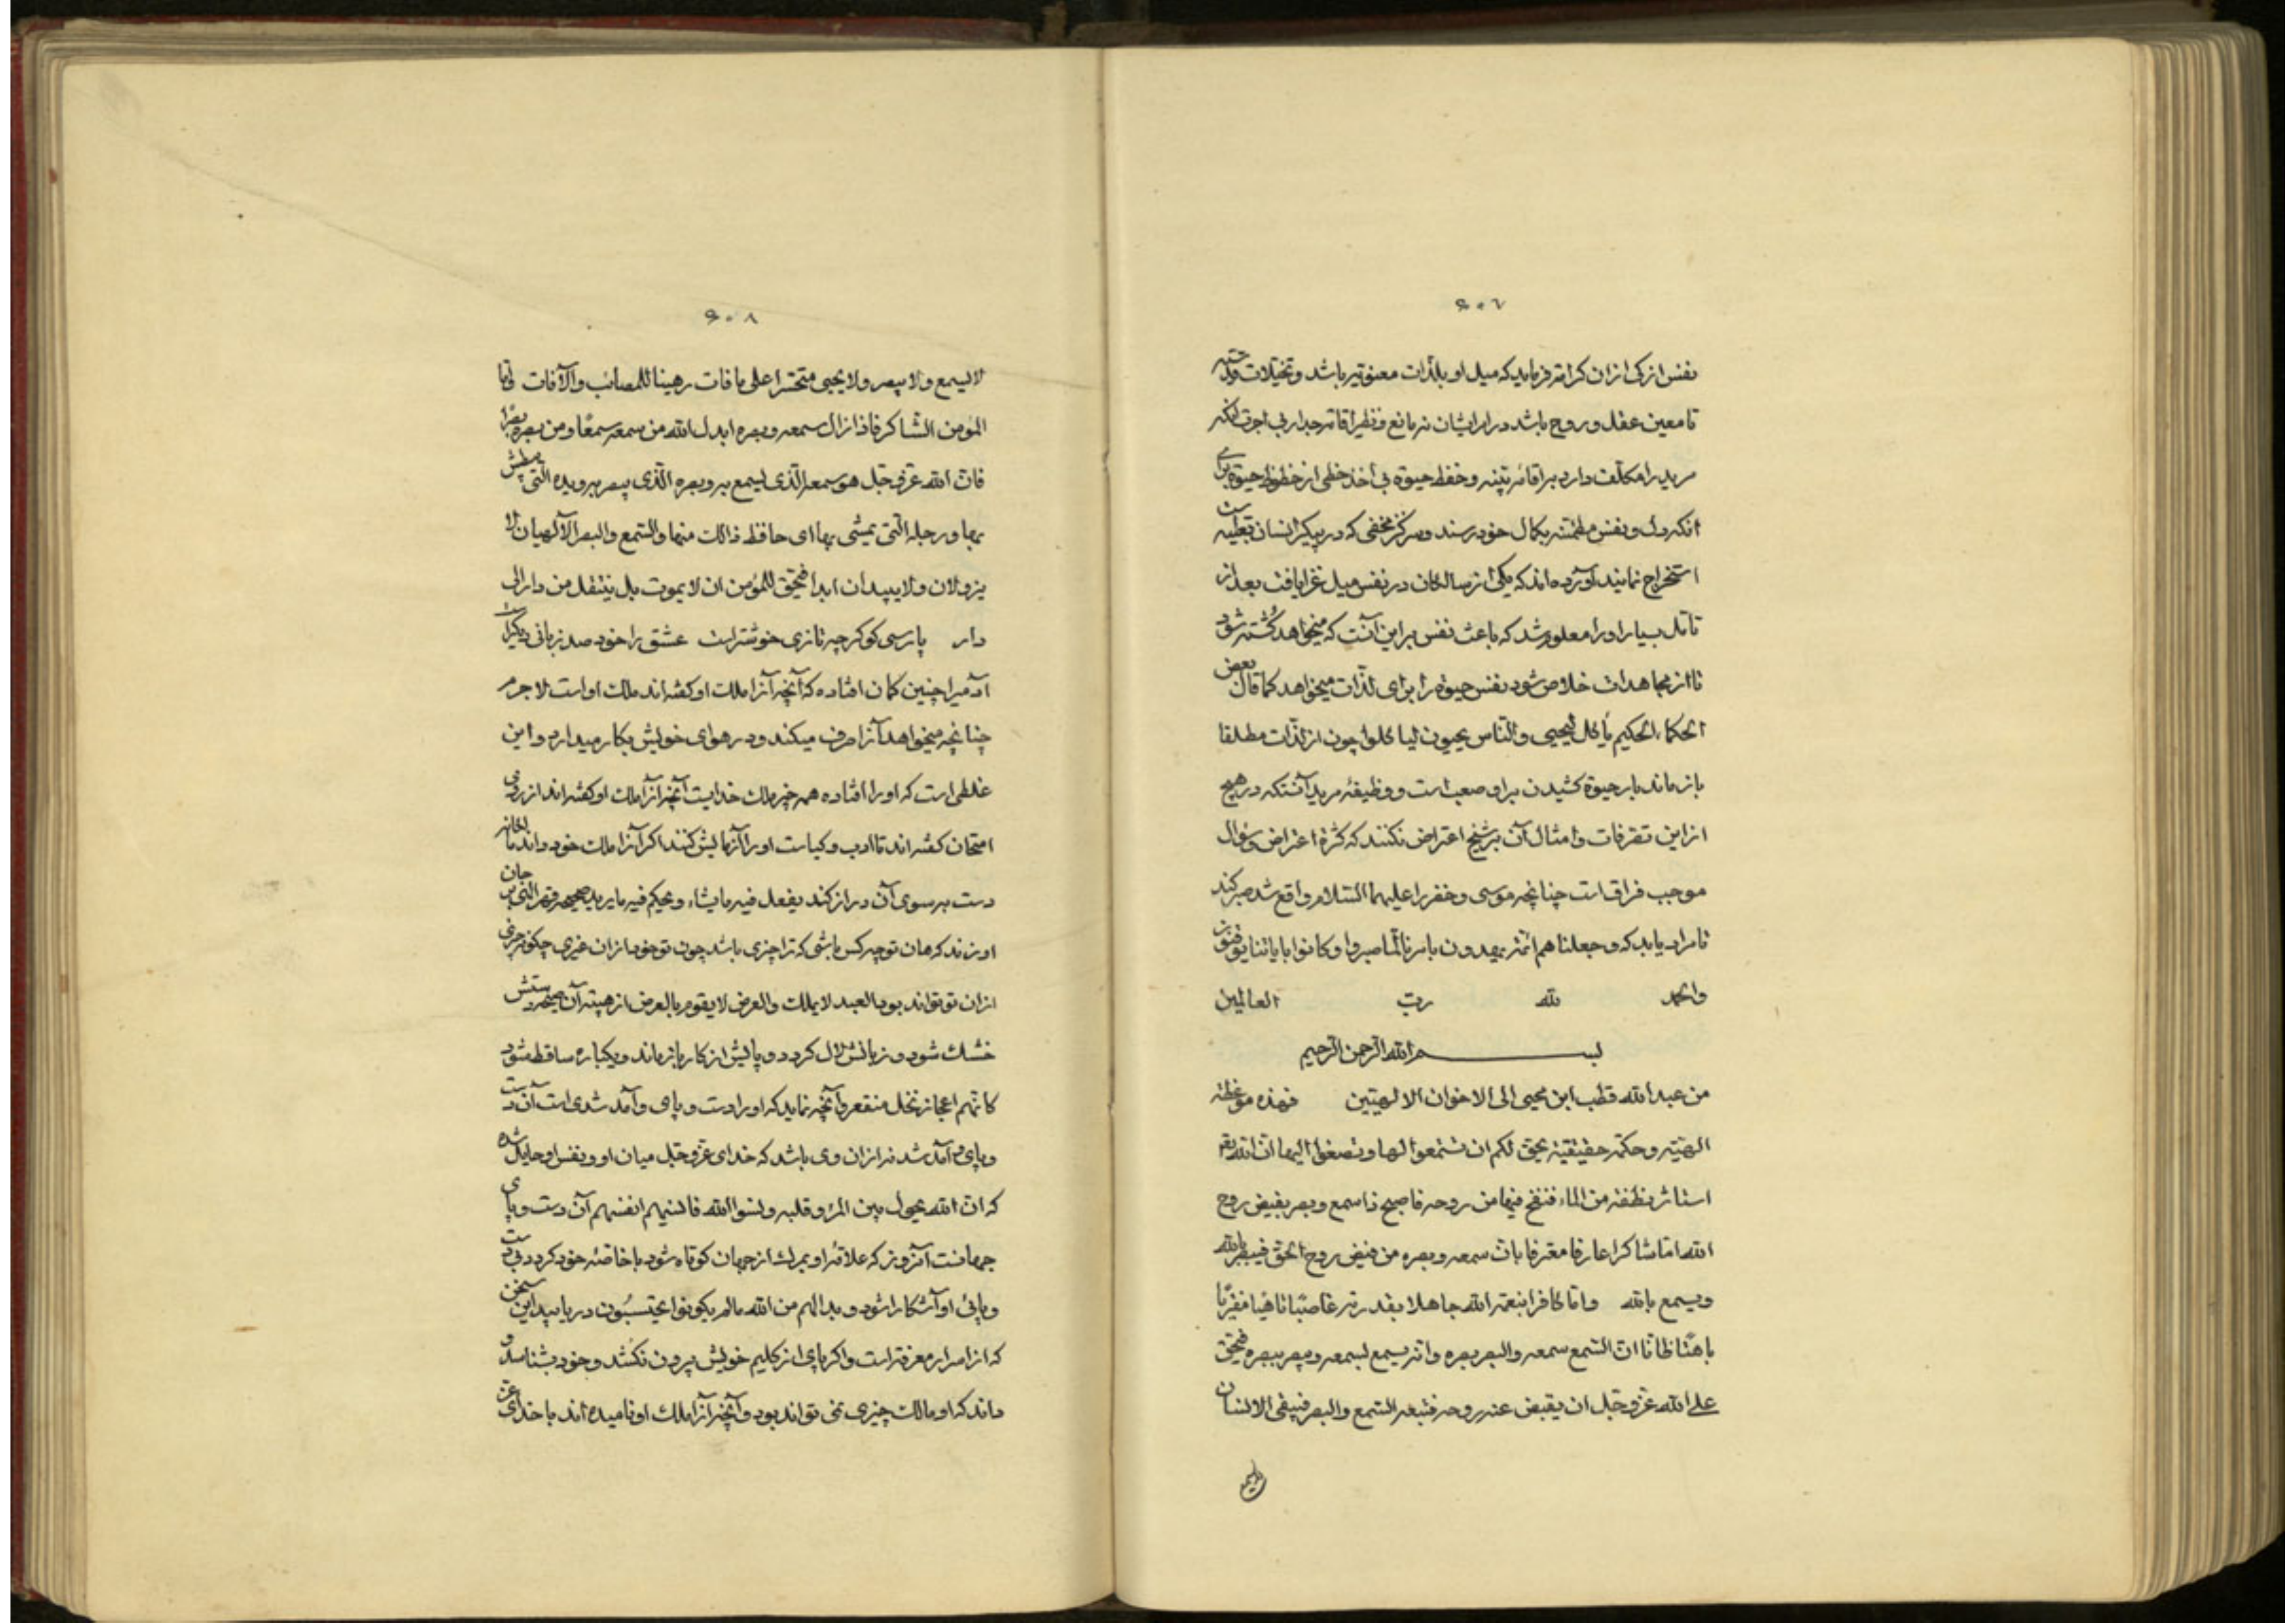 ۶۰۷
نفس ازکی ازان کرامة فرماید که میل او بلذات معنویه باشد و تخیلات
تا معین عقل و روح باشد در راه ایشان نه مانع و نظیر اقامة جدار بی اجرت آنکه
مرید را مکلف دارد بر اقامة بنیه و حفظ حیوة بی اخذ حظی از حظوظ حیوة برای
آنکه دل و نفس مطمئنه بکمال خود رسند و مرکز مخفی که در پیکر انسان تعبیه است
استخراج نمایند آورده اند که یکی از سالکان در نفس میل غزا یافت بعد از
تأمل بسیار او را معلوم شد که باعث نفس بر این آنست که میخواهد کشته شود
تا از مجاهدات خلاص شود نفس حیوة را برای لذات میخواهد کما قال بعض
الحکماء الحکیم یأکل لیحیی و الناس یحیون لیاکلوا چون از لذات مطلقا
باز ماند بار حیوة کشیدن بر او صعب است و وظیفهٔ مرید آنستکه در هیچ
از این تصرفات و امثال آن بر شیخ اعتراض نکنند که کثرة اعتراض و سؤال
موجب فراق است چنانچه موسی و خضر را علیهما السلام واقع شد صبر کند
تا مراد یابد که و جعلنا هم ائمة یهدون بامرنا لما صبروا و کانوا بایاتنا یوقنون
والحمد لله رب العالمین
بسم الله الرحمن الرحیم
من عبد الله قطب ابن محیی الی الاخوان الالهیین فهذه موعظة
الهیة و حکمة حقیقیة یحق لکم ان تستمعوا لها و تصغوا الیها ان الله
انشاء نطفة من الماء فنفخ فیها من روحه فاصبح ذا سمع و بصر بفیض روح
الله اما شاکرا عارفا معترفا بان سمعه و بصره من فیض روح الحق فیبصر بالله
و یسمع بالله و اما کافرا بنعمة الله جاهلا بقدرته غاصبا تاهیا مفتریا
باهتا ظانا ان السمع سمعه و البصر بصره و انه یسمع بسمعه و یبصر ببصره فیحق
علی الله عز و جل ان یقبض عنه روحه فتبعه السمع و البصر فیبقی الانسان
۶۰۸
لا یسمع و لا یبصر و لا یحیی متحسرا علی ما فات رهینا للمصائب و الآفات و اما
المؤمن الشاکر فاذا زال سمعه و بصره ابدل الله من سمعه سمعًا و من بصره بصرًا
فان الله عز و جل هو سمعه الذی یسمع به و بصره الذی یبصر به و یده التی یبطش
بها و رجله التی یمشی بها ای حافظ ذالک منها و السمع و البصر الآلهیان لا
یزولان و لا یبیدان ابدا فیحق للمؤمن ان لا یموت بل ینتقل من دار الی
دار پارسی کو کرچه تازی خوشتر است عشق را خود صد زبانی دیگر است
آدمیرا چنین کمان افتاده که آنچه آنرا ملک او کفته اند ملک او است لا جرم
چنانچه میخواهد آنرا صرف میکند و در هوای خویش بکار میدارد و این
غلطی است که او را افتاده همه چیز ملک خدایست آنچه آنرا ملک او کفته اند از روی
امتحان کفته اند تا ادب و کیاست او را آزمایش کنند اکر آنرا ملک خود داند
دست بر سوی آن دراز کند یفعل فیه ما یشاء و یحکم فیه ما یرید صیحه قهر الهی بر جان
او زند که هان تو چه کس باشی که ترا چیزی باشد چون تو خود از ان غیری چکونه چیزی
ازان تو تواند بود العبد لا یملک و العرض لا یقوم بالعرض از هیبة آن صیحه دستش
خشک شود و زبانش لال کردد و پایش از کار باز ماند و یکباره ساقط شود
کانهم اعجاز نخل منقعر و آنچه نماید که او را دست و پای و آمد شدی است آن دست
و پای و آمد شد نه از ان وی باشد که خدای عز و جل میان او و نفس او حایل شده
که ان الله یحول بین المرء و قلبه و نسوا الله فانسیهم انفسهم آن دست و پای
جهانست آنروز که علاقهٔ او بمرک از جهان کوتاه شود با خاصهٔ خود کردد بی دست
و پائی او آشکارا شود و بدا لهم من الله ما لم یکونوا یحتسبون دریابید این سخن
که از اسرار معرفة است و اکر پای از کلیم خویش بیرون نکشد و خود بشناسد و
داند که او مالک چیزی نمی تواند بود و آنچه آنرا ملک او نامیده اند با خدای عز